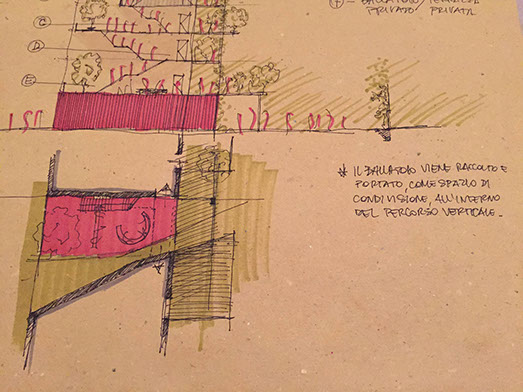 F - BALLATOIO/TERRAZZA
PRIVATO / PRIVATA
C
D
E
* IL BALLATOIO VIENE RACCOLTO E
PORTATO, COME SPAZIO DI
CONDIVISIONE, ALL'INTERNO
DEL PERCORSO VERTICALE.